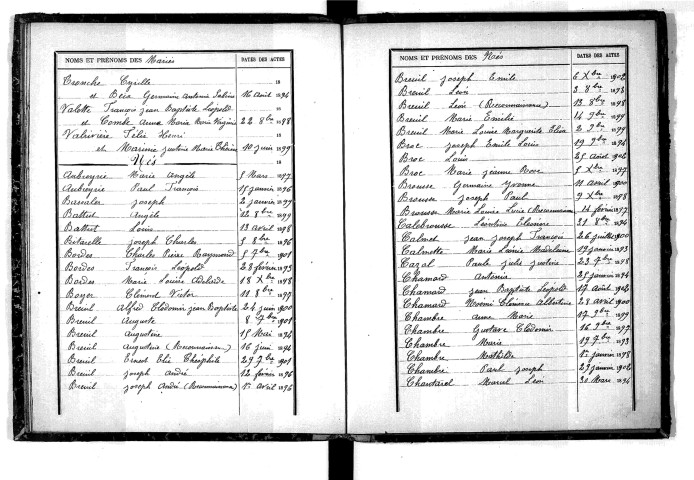 NOMS ET PRÉNOMS DES Mariés DATES DES ACTES
Cronche Cyrille 18
et Beix Germaine Antonia Sabine 16 Août 1894
Valette François Jean Baptiste Léopold 18
et Combe Anna Maria Virginie 22 8bre 1898
Valivière Félix Henri 18
et Marie Justine Marie 10 juin 1899
Nés 18
Aubreyrie Marie Angèle 5 Mars 1897
Aubreyrie Paul François 15 janvier 1896
Joseph 2 janvier 1899
Battut Angèle 22 8bre 1899
Battut Louis 13 avril 1898
Joseph Charles 5 8bre 1896
Bordes Charles Pierre Raymond 5 7bre 1901
Bordes François Léopold 28 février 1893
Bordes Marie Louise Adélaïde 18 Xbre 1898
Boyer Clément Victor 11 8bre 1897
Breuil Alfred Clodomir Jean Baptiste 24 juin 1900
Breuil Auguste 8 7bre 1901
Breuil Augustine 15 Mai 1894
Breuil Augustine (Reconnaissance) 16 juin 1894
Breuil Ernest Théophile 29 7bre 1901
Breuil Joseph André 12 février 1896
Breuil Joseph André (Reconnaissance) 12 avril 1896
NOMS ET PRÉNOMS DES Nés DATES DES ACTES
Breuil Joseph Emile 6 Xbre 1902
Breuil Léon 3 8bre 1893
Breuil Léon (Reconnaissance) 13 8bre 1898
Breuil Marie Emélie 14 9bre 1899
Breuil Marie Louise Marguerite Elisa 2 9bre 1899
Broc Joseph Emile Louis 19 9bre 1894
Broc Louis 25 Août 1902
Broc Marie Jeanne Rose 5 Xbre 1897
Brousse Germaine Yvonne 11 avril 1900
Brousse Joseph Paul 9 Xbre 1898
Brousse Marie Louise (Reconnaissance) 14 février 1897
Calebrousse Léontine Eléonore 31 8bre 1894
Calmet Jean Joseph François 26 juillet 1900
Calmette Marie Louise Madeleine 19 janvier 1893
Cazal Paule Julie Justine 23 7bre 1898
Chamard Antonia 25 janvier 1894
Chamard Jean Baptiste Léopold 17 Août 1902
Chamard Noémie Clémence Albertine 28 avril 1900
Chambre Anna Marie 17 9bre 1899
Chambre Gustave Clodomir 16 9bre 1897
Chambre Marie 19 7bre 1893
Chambre Mathilde janvier 1898
Chambre Paul Joseph 29 janvier 1902
Chastard Marcel Léon 30 Mars 1894